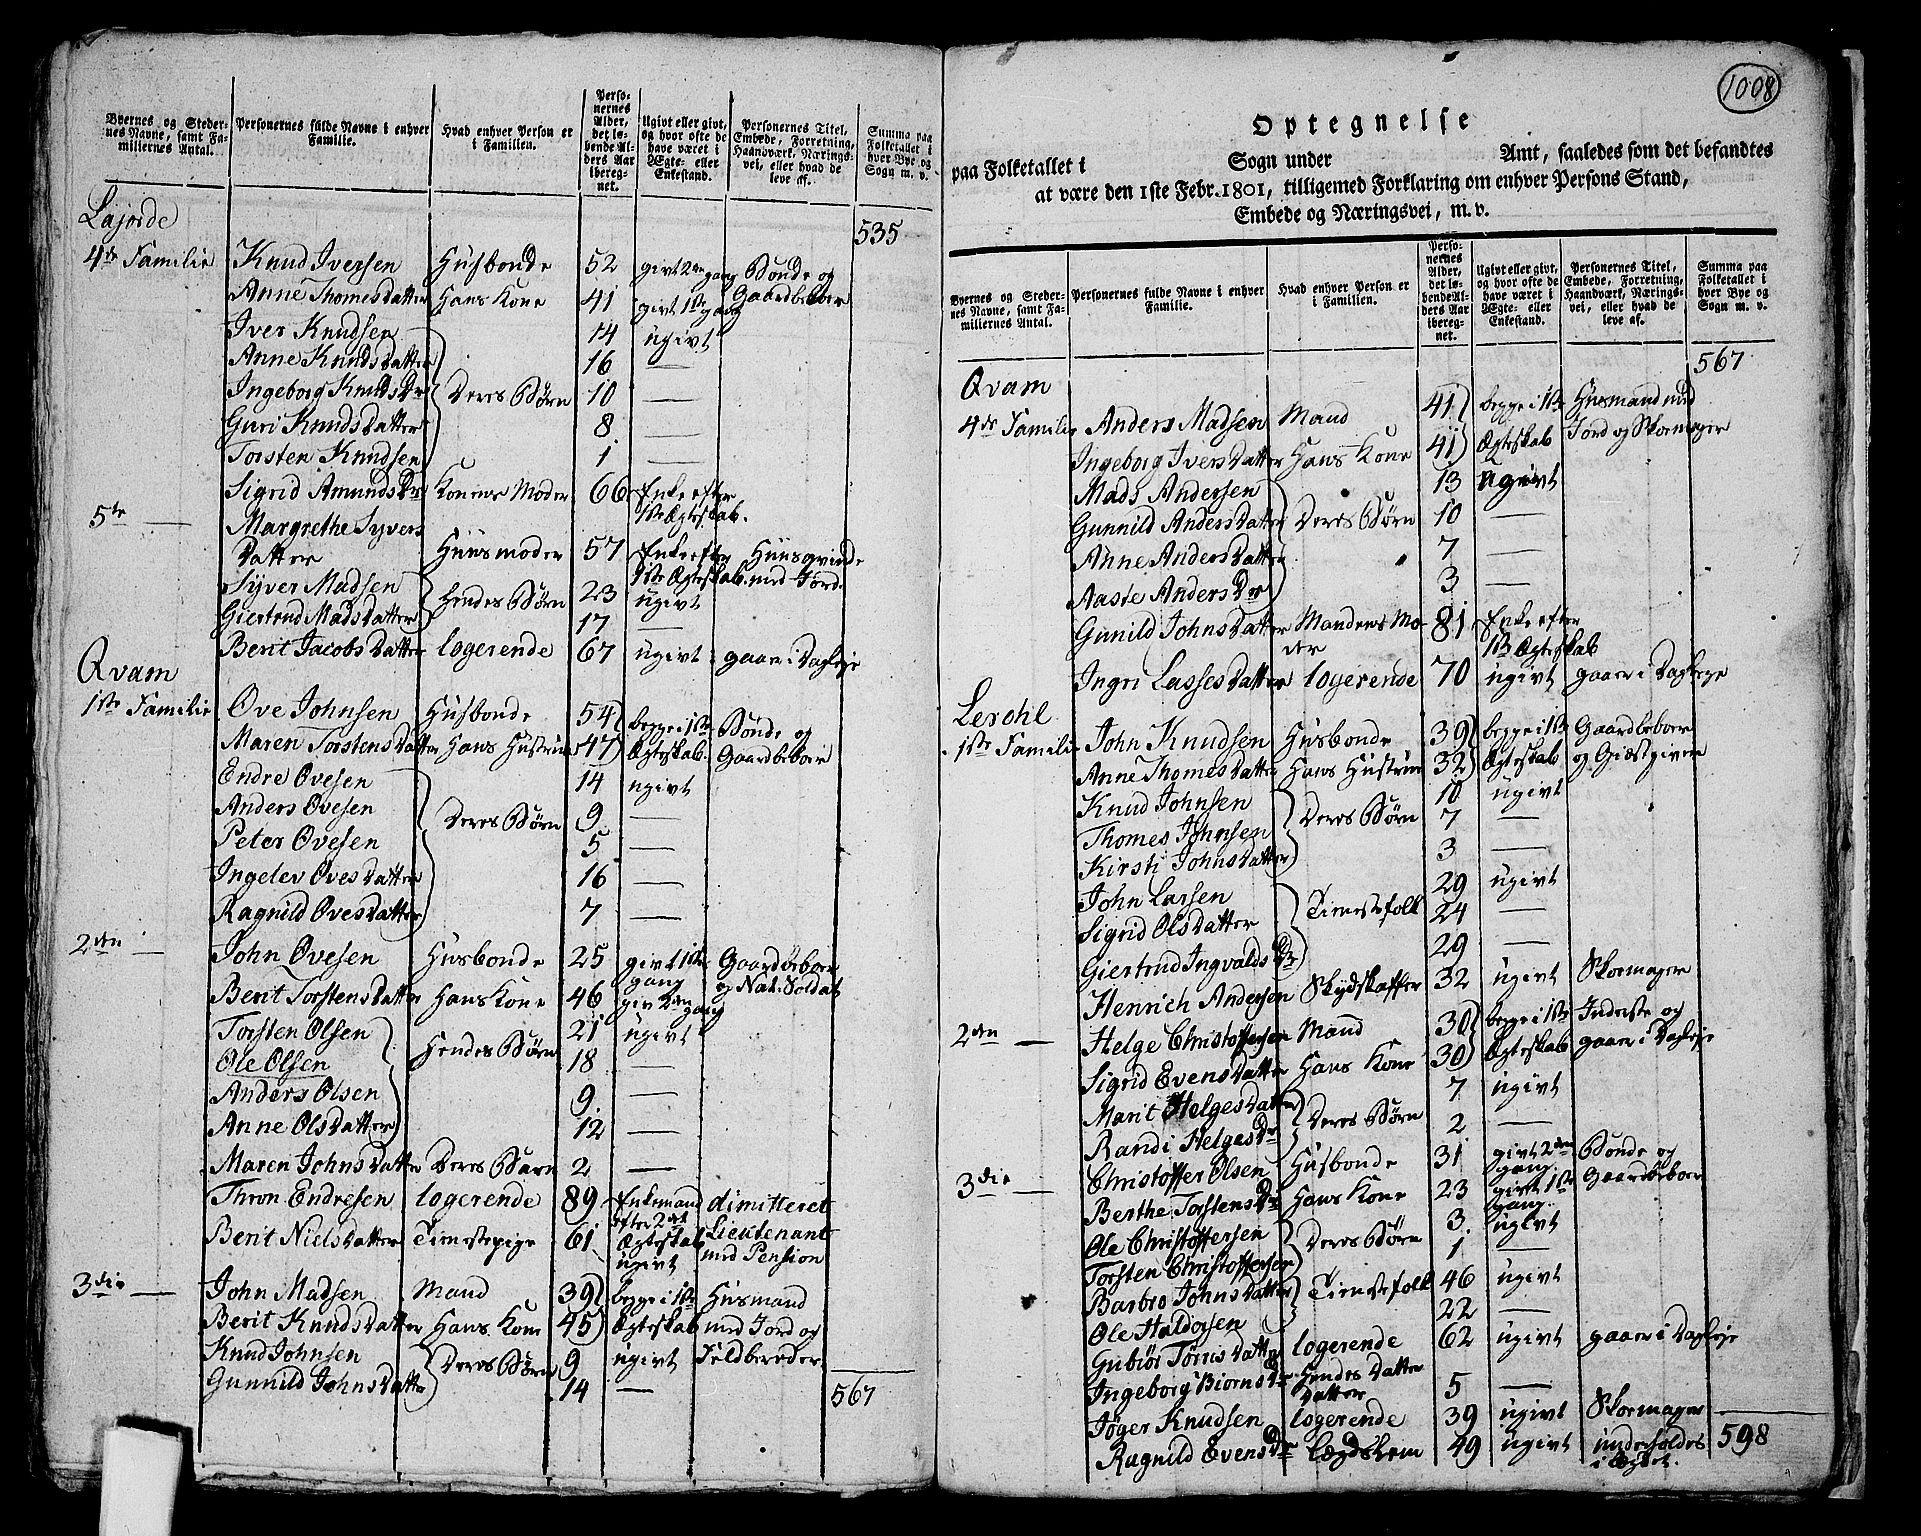 Byernes og Steder-
nes Navne, samt Fa-
miliernes Antal.
Personernes fulde Navne i enhver
Familie.
Hvad enhver Person er
i Familien.
Perso-
nernes
Alder,
det lø-
bende Al-
ders Aar
ibereg-
net.
Ugivt eller givt,
og hvor ofte de
have været i
Ægte- eller
Enkestand.
Personernes Titel,
Embede, Forretning,
Haandværk, Nærings-
vei, eller hvad de
leve af.
Summa paa
Folketallet i
hver Bye og
Sogn m. v.
Lajorde
535
4de Familie Knud Iversen Husbonde 52 givt 2den gang Bonde og
Anne Thomesdatter Hans Kone 41 givt 1ste gang Gaardbeboer
Iver Knudsen 14 ugivt
Anne Knudsdatter 16 —
Ingeborg Knudsdr Deres Børn 10 —
Guri Knudsdatter 8 —
Torsten Knudsen 1 —
Sigrid Amundsdr Konens Moder 66 Enke efter
1ste Ægteskab.
5te — Margrethe Syvers
datter Huusmoder 57 Enke efter Huusqvinde
1ste Ægteskab. med Jord.
Syver Madsen Hendes Børn 23 ugivt
Giertrud Madsdatter 17 —
Berit Jacobsdatter logerende 67 ugivt gaaer i Dagleje
Qvam
1ste Familie Ove Johnsen Husbonde 54 begge i 1ste Bonde og
Maren Torstensdatter Hans Hustrue 47 Ægteskab. Gaardbeboer
Endre Ovesen 14 ugivt
Anders Ovesen Deres Børn 9 —
Peter Ovesen 5 —
Ingelev Ovesdatter 16 —
Ragnild Ovesdatter 7 —
2den — John Ovesen Husbonde 25 givt 1ste Gaardbeboer
gang og Nat. Soldat
Berit Torstensdatter Hans Kone 46 giv 2den gang
Torsten Olsen 21 ugivt
Ole Olsen Hendes Børn 18 —
Anders Olsen 9 —
Anne Olsdatter 12 —
Maren Johnsdatter Deres Barn 2 —
Thron Endresen logerende 89 Enkemand dimitteret
efter 2det
Berit Nielsdatter Tienestepige 61 Ægteskab Lieutenant
ugivt med Pension
3die — John Madsen Mand 39 begge i 1ste Husmand
Berit Knudsdatter Hans Kone 45 Ægteskab med Jord og
Knud Johnsen Deres Børn 9 ugivt Feldbereder
Gunnild Johnsdatter 14 —
567
1008
Optegnelse
paa Folketallet i Sogn under Amt, saaledes som det befandtes
at være den 1ste Febr. 1801, tilligemed Forklaring om enhver Persons Stand,
Embede og Næringsvei, m. v.
Byernes og Steder-
nes Navne, samt Fa-
miliernes Antal.
Personernes fulde Navne i enhver
Familie.
Hvad enhver Person er
i Familien.
Perso-
nernes
Alder,
det lø-
bende Al-
ders Aar
ibereg-
net.
Ugivt eller givt,
og hvor ofte de
have været i
Ægte- eller
Enkestand.
Personernes Titel,
Embede, Forretning,
Haandværk, Nærings-
vei, eller hvad de
leve af.
Summa paa
Folketallet i
hver Bye og
Sogn m. v.
567
Qvam
4de Familie Anders Madsen Mand 41 begge i 1ste Husmand med
Ingeborg Iversdatter Hans Kone 41 Ægteskab Jord og Skomager
Mads Andersen 13 ugivt
Gunnild Andersdatter Deres Børn 10 —
Anne Andersdatter 7 —
Aaste Andersdr 3 —
Gunild Johnsdatter Mandens Mo- 81 Enke efter
der 1ste Ægteskab
Ingri Lassesdatter logerende 70 ugivt gaaer i Dagleje
Lerohl
1ste Familie John Knudsen Husbonde 39 begge i 1ste Gaardbeboer
Anne Thomesdatter Hans Hustrue 32 Ægteskab og Giæstgiver
Knud Johnsen 10 ugivt
Thomes Johnsen Deres Børn 7 —
Kirsti Johnsdatter 3 —
John Larsen 29 ugivt
Sigrid Olsdatter Tienestefolk 24 —
Giertrud Ingvaldsdr 29 —
Henrich Andersen Skydskaffer 32 ugivt Skomager
2den — Helge Christoffersen Mand 30 begge i 1ste Inderste og
Sigrid Evensdatter Hans Kone 30 Ægteskab gaaer i Dagleje
Marit Helgesdatter Deres Børn 7 ugivt
Randi Helgesdr 2 —
3die — Christoffer Olsen Husbonde 31 givt 2den gang Bonde og
Berthe Torstensdr Hans Kone 23 givt 1ste gang. Gaardbeboer
Ole Christoffersen Deres Børn 3 ugivt
Torsten Christoffersen 1 —
Barbro Johnsdatter Tienestefolk 46 ugivt
Ole Haldorsen 22 —
Gubiør Tørrisdatter logerende 62 ugivt gaaer i Dagleje
Ingeborg Biornsdr Hendes Datter
Datter 5 —
Jøger Knudsen logerende 39 ugivt Skomager
Ragnild Evensdr Lægdslem 49 ugivt underholdes
i Lægdet.
598